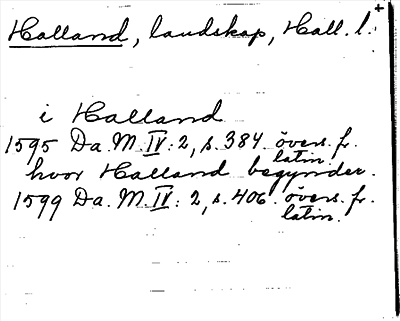 Halland, landskap, Hall. l.
i Halland
1595 Da. M. IV: 2, s. 384. övers. fr. latin
hvor Halland begynder.
1599 Da. M. IV: 2, s. 406. övers. fr. latin.